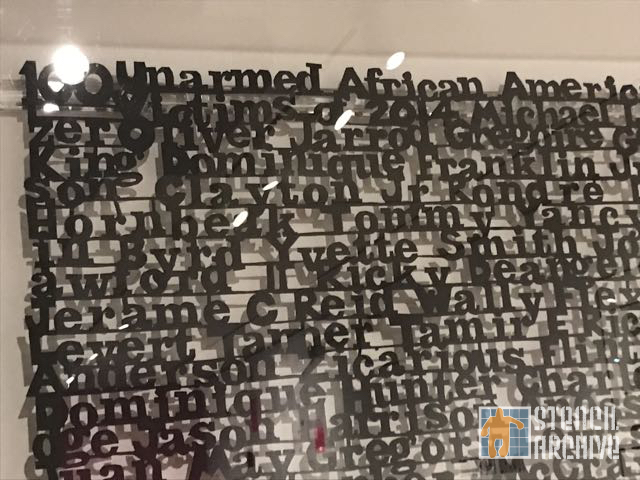 100 Unarmed African Americ
Victims of 2014 Michael
Oliver Jarrod Gregoire
King Dominique Franklin Jr
son Clayton Jr Rondre
Hornbeak Tommy Yanc
in Byrd Yvette Smith Jo
awford II Ricky Deangel
Jerame C Reid Wally Flex
Levert Tanner Tamir E Ric
Anderson Zicarious Flin
Dominique Hunter Charl
dge Jason Harrison
Juan May Gregor
STENCIL
ARCHIVE